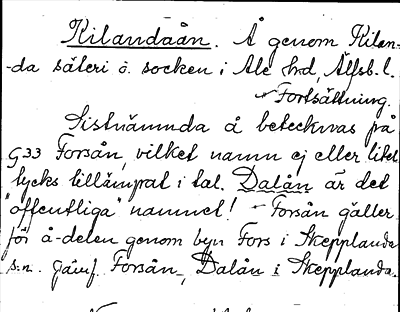 Kilandaån. Å genom Kilan-
-da säteri o. socken i Ale hd, Älfsb. l.
Fortsättning.
Sistnämnda å betecknas på
G 33 Forsån, vilket namn ej eller litet
tycks tillämpat i tal. Dalån är det
"offentliga" namnet! - Forsån gäller
för å-delen genom byn Fors i Skepplanda
s:n. Jämf. Forsån, Dalån i Skepplanda.